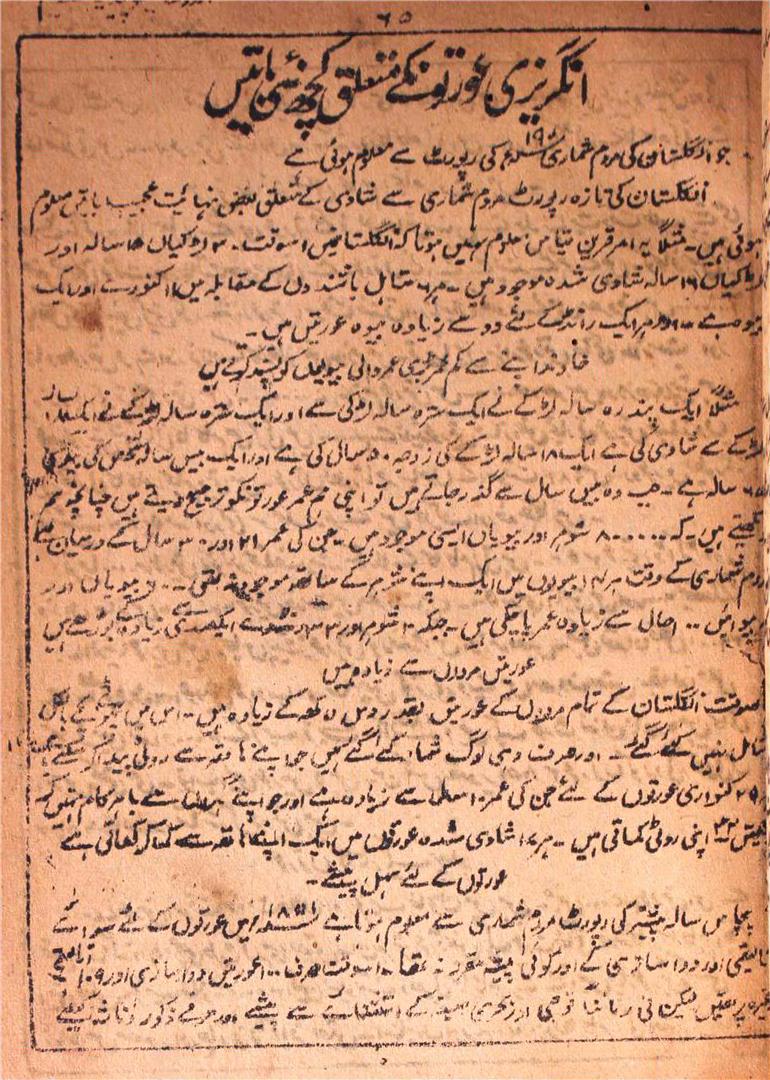 ۶۵
انگریزی عورتونکے متعلق کچھ نئی باتیں
جو انگلستان کی مردم شماری کی رپورٹ سے معلوم ہوئی ہے
انگلستان کی تازہ رپورٹ مردم شماری سے شادی کے متعلق بعض نہایت عجیب باتیں معلوم
ہوئی ہیں۔ مثلاً یہ امر قرین قیاس معلوم نہیں ہوتا کہ انگلستانمیں اسوقت ۳ لڑکیاں ۱۵ سالہ اور
لڑکیاں ۱۶ سالہ شادی شدہ موجود ہیں۔ ہر متاہل باشندوں کے مقابلہ میں کنورے اور ایک
بیوہ ہے۔ اور ہر ایک رانڈ کے لئے دو سے زیادہ بیوہ عورتیں ہیں۔
خاوند اپنے سے کم عمر بڑی عمر والی بیویوں کو پسند کرتے ہیں
مثلاً ایک پندرہ سالہ لڑکے نے ایک سترہ سالہ لڑکی سے اور ایک سترہ سالہ لڑکے نے ایک
لڑکے سے شادی کی ہے ایک ۱۸ سالہ لڑکے کی زوجہ ۵۰ سال کی ہے اور ایک بیس سالہ شخص کی بیوی
سالہ ہے۔ جب وہ بیس سال سے گذر جاتے ہیں تو اپنی ہم عمر عورتونکو ترجیح دیتے ہیں چنانچہ ہم
دیکھتے ہیں۔ کہ ۸۰۰۰۰۰ شوہر اور بیویاں ایسی موجود ہیں۔ جن کی عمر ۲۱ اور ۳۰ سال کے درمیان ہے
مردم شماری کے وقت ہر بیویوں میں ایک اپنے شوہر کے ساتھ موجود نہ تھی۔ بیویاں اور
بیوائیں ۱۰۰ سال سے زیادہ عمر پا چکی ہیں۔ جبکہ ۲ شوہر اور رنڈوے ایکصدی سے زیادہ کے بوڑھے ہیں
عورتیں مردوں سے زیادہ ہیں
اسوقت انگلستان کے تمام مردوں کے عورتیں بقدر دس لاکھ کے زیادہ ہیں۔ اس میں بچے
شامل نہیں کئے گئے۔ اور صرف وہی لوگ شمار کئے گئے ہیں جو اپنے ہاتھ سے روٹی پیدا کر سکتے ہیں
۲۹ کنواری عورتوں کے لئے جن کی عمر سے زیادہ ہے اور جو اپنے گھروں سے باہر کام نہیں کرتیں
اپنی روٹی کماتی ہیں۔ ہر شادی شدہ عورتوں میں ایک اپنے ہاتھ سے کما کر کھاتی ہے
عورتوں کے لئے سہل پیشے۔
پچاس سالہ پیشتر کی رپورٹ مردم شماری سے معلوم ہوتا ہے میں عورتوں کے لئے سوائے
اور دوا سازی کے اور کوئی پیشہ مقرر نہ تھا۔ اسوقت صرف عورتیں دوا سازی اور ۱۰۹
وغیرہ پر تھیں لیکن فی زماننا فوجی اور بحری صیغہ کے استثنا کے سب پیشے اور حرفے ذکور و اناث کیلئے